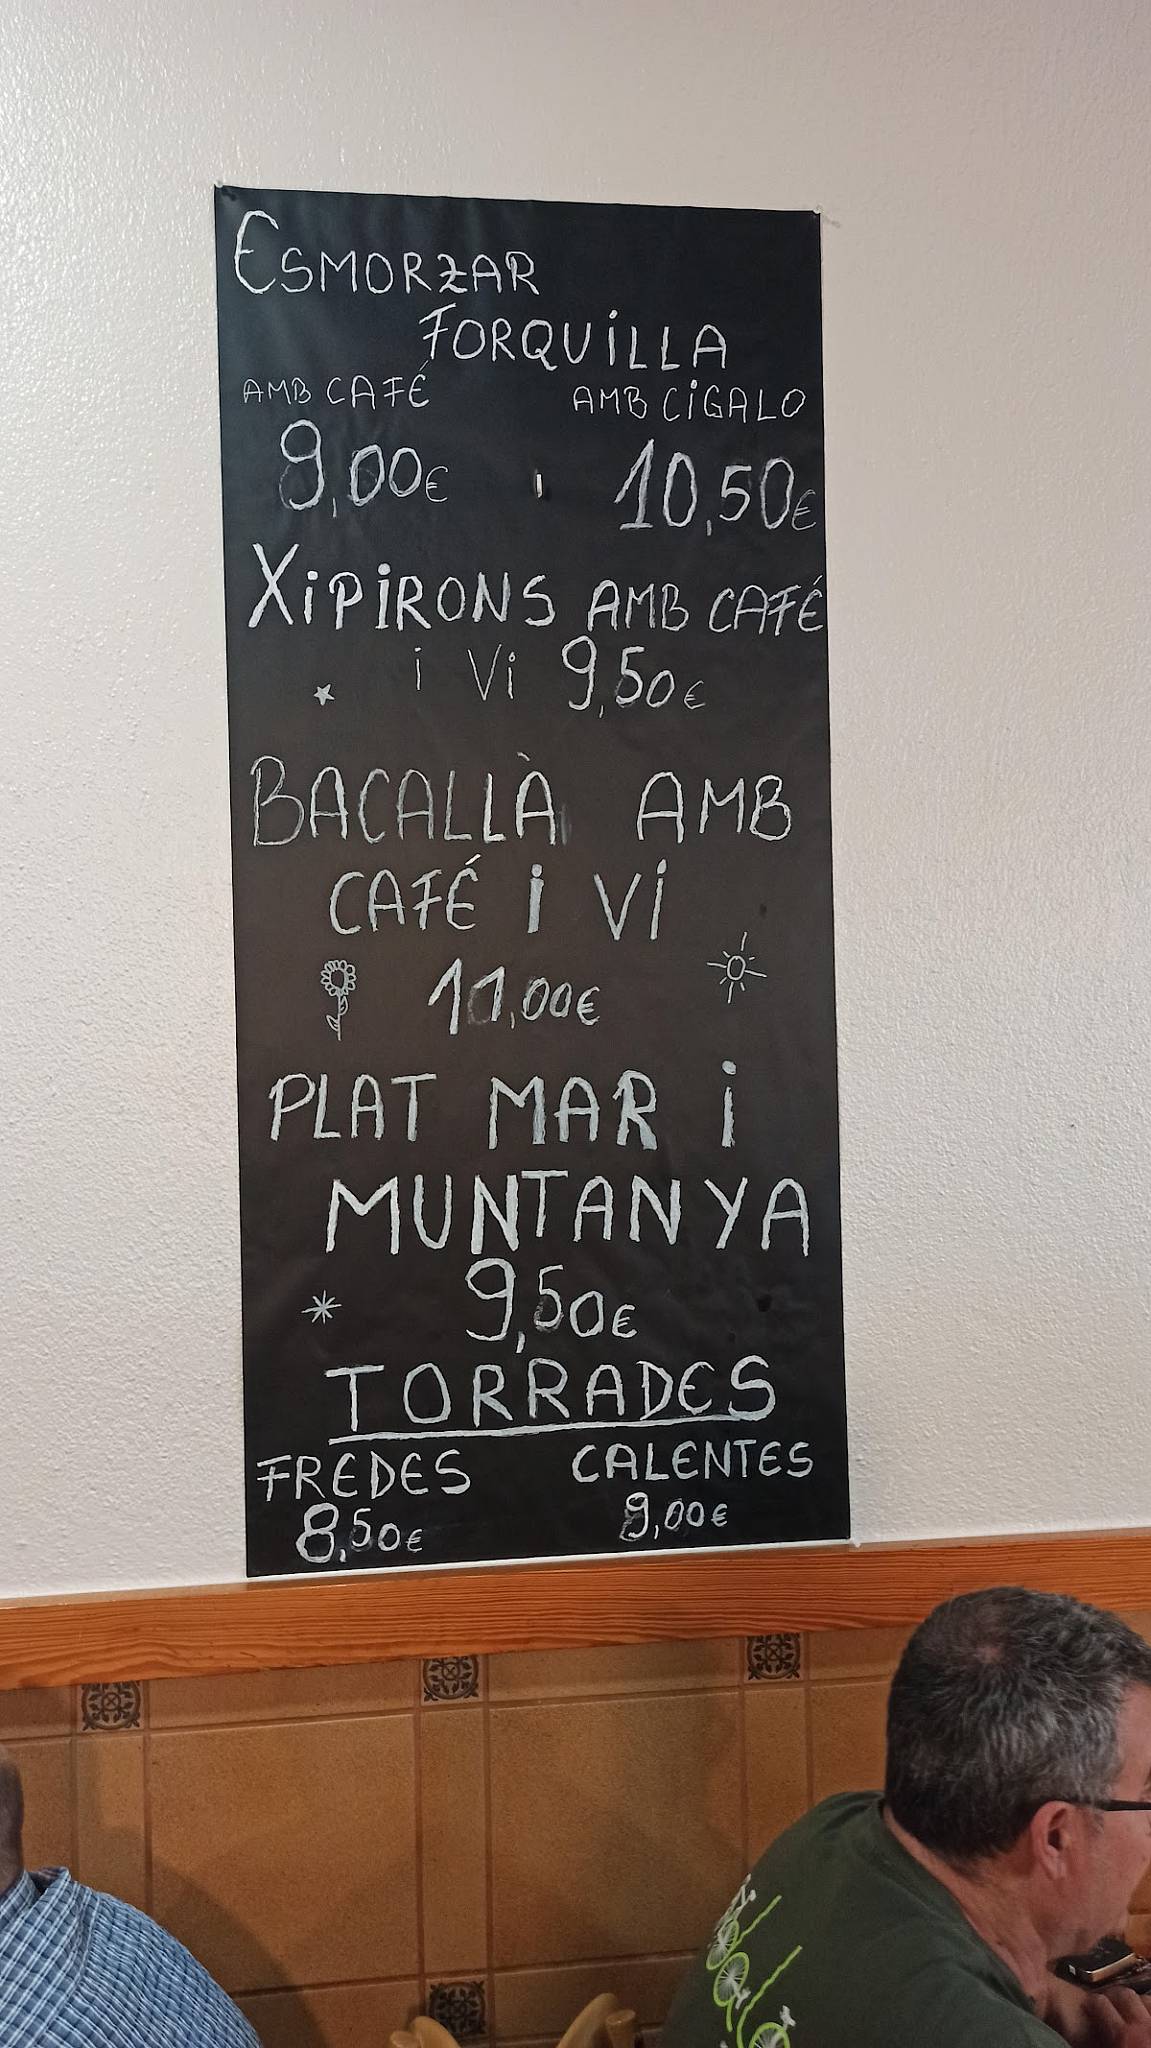 ESMORZAR
FORQUiLLA
AMB CAFÉ AMB CiGALO
9,00€ 10,50€
XiPiRONS AMB CAFÉ
i Vi 9,50€
BACALLÀ AMB
CAFÉ i Vi
11,00€
PLAT MAR i
MUNTANYA
9,50€
TORRADES
FREDES CALENTES
8,50€ 9,00€